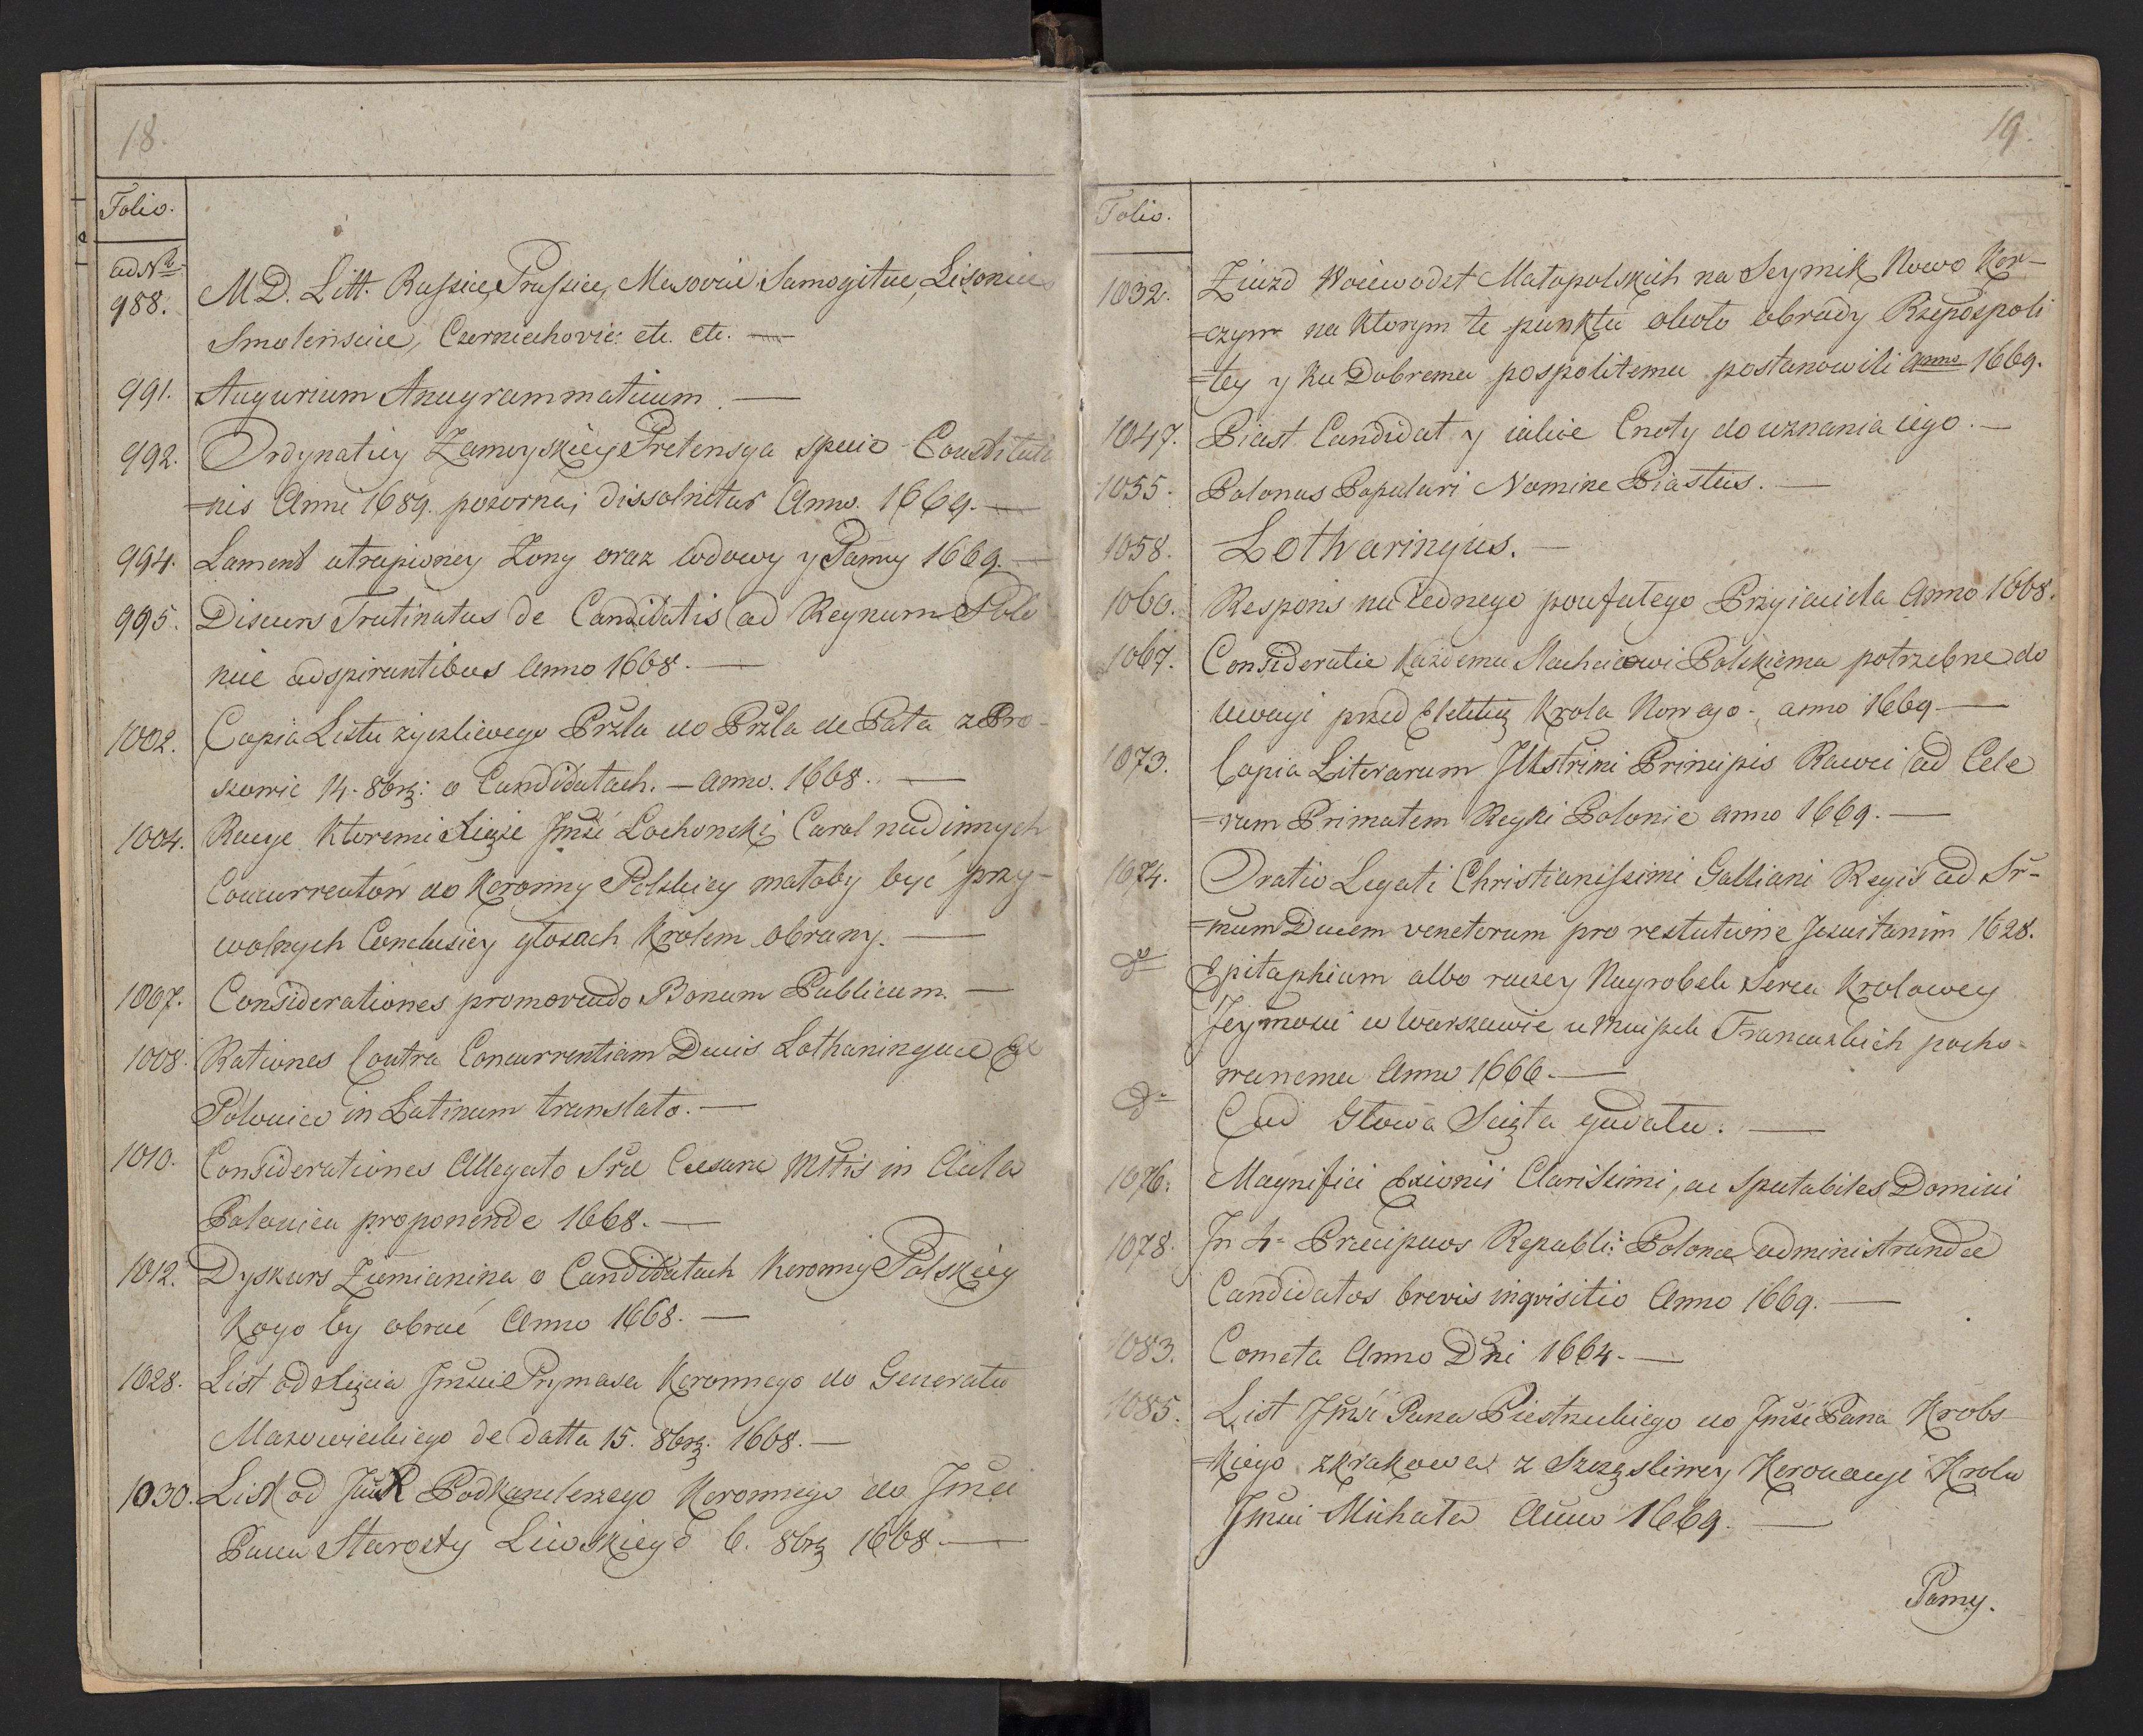 18.
Folio.
ad Nr
988. M D. Litt. Russiae, Prussiae, Masoviae Samogitiae, Lisoniae
Smolensciae, Czerniechoviae: etc. etc. —
991. Augurium Anagrammaticum. —
992. Ordynatiey Zamoyskiey Pretensya specio Constitutio
=nis Anni 1689. pozorna; dissolvietur Anno. 1669. —
994. Lament utrapioney Zony oraz wdowy y Panny 1669. —
995. Discurs Trutinatus de Candidatis ad Regnum Polo
niae adspirantibus Anno 1668. —
1002. Copia Listu zyczliwego Przla do Przla de Data z Pro-
szowic 14. 8brs: o Candidatach. — anno. 1668. —
1004. Racye Ktoremi Xiąże Jmść Lochonski Carol nad innych
Concurrentów do Korony Polskiey miałby być przy-
wolnych Conclusiey głosach Krolem obrany. —
1007. Considerationes promovendo Bonum Publicum. —
1008. Rationes Contra Concurrentiam Ducis Lothaningiae Ex
Polonico in Latinum translato. —
1010. Considerationes Allegato Srae Caesarae Mttis in Aula
Polonica proponende 1668. —
1012. Dyskurs Ziemianina o Candidatach Korony Polskiey
Kogo by obrać Anno 1668. —
1028. List od Xiążcia Jmści Prymasa Koronnego do Generału
Mazowieckiego de datta 15. 8brs. 1668. —
1030. List od Podkanclerzego Koronnego do Jmści
Pana Starosty Liwskiego 6. 8brs 1668. —
19.
Folio.
1032. Ziazd Woiewodzt Małopolskich na Seymik Nowo Kor-
=czyn na ktorym te punkta około obrady Rzepospoli
=tey y ku Dobremu pospolitemu postanowili anno 1669.
1047. Piast Candidat y iakie Cnoty do uznania iego. —
1055. Polonus Populari Nomine Piastus. —
1058. Lotharingus. —
1060. Respons na iednego poufałego Przyiaciela Anno 1668.
1067. Consideratie każdemu Slachcicowi Polskiemu potrzebne do
uwagi przed Elektią Krola Nowego. anno 1669 —
1073. Copia Literarum Illstrimi Principis Ravei ad Cele
=rum Primatem Regni Polonie anno 1669. —
1074. Oratio Legati Christianissimi Galliani Regis ad Sr-
=mum Ducem venetorum pro restutione Jesuitanim 1628.
do Epitaphium albo raczey Nagrobek serca Krolowey
Jeymosci w Warszawie u Francuzkich pocho-
wanemu Anno 1666. —
do Cud Głowa Scięta gadała. —
1076. Magnifici Eximii Clarissimi, ac Spectabiles Domini
1078. In 4. Praecipuos Republi: Polonae administrandae
Candidatos brevis inqvisitio Anno 1669. —
1083. Cometa Anno Dni 1664. —
1085. List Jmści Pana Piestrzeckiego do Jmści Pana Krobs
=kiego z Krakowa z Szczęsliwey Koronacyi Krola
Jmści Michała Anno 1669. —
Pamy.